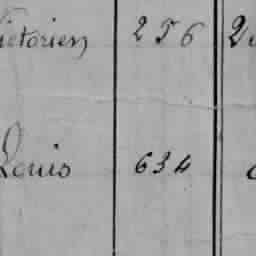 ictorien 256
Louis 634